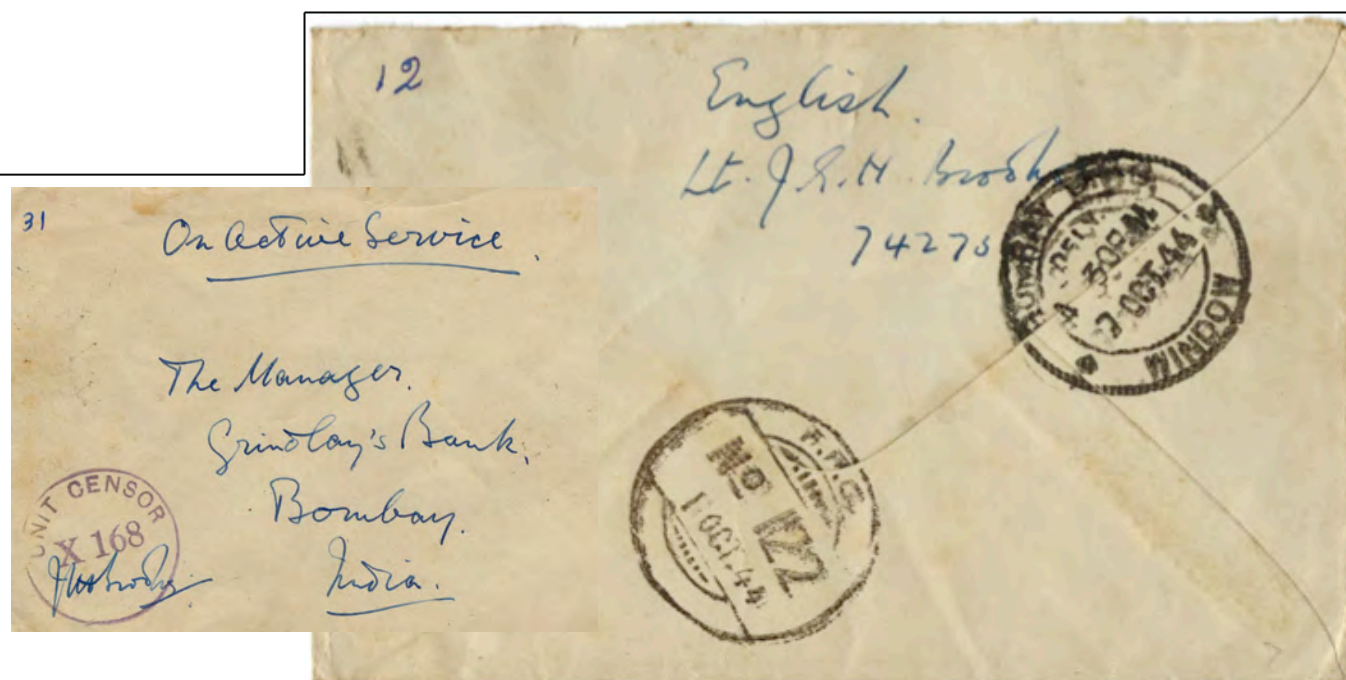 12
English.
Lt. J.G.H. Brooks
74275
BOMBAY
DELY.
4 30PM
OCT.44
WINDOW
No 122
1 OCT.44
31
On Active Service.
The Manager.
Grindlay's Bank,
Bombay.
India.
UNIT CENSOR
X 168